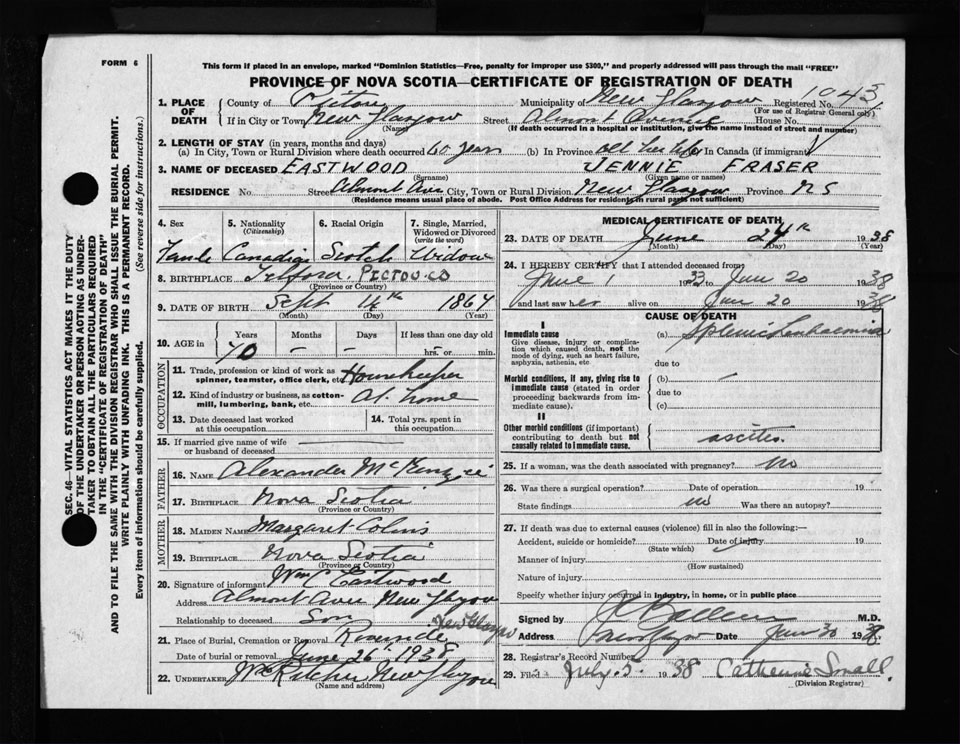 FORM 6
This form if placed in an envelope, marked "Dominion Statistics—Free, penalty for improper use $300," and properly addressed will pass through the mail "FREE"
PROVINCE OF NOVA SCOTIA—CERTIFICATE OF REGISTRATION OF DEATH
1. PLACE OF DEATH
County of Pictou Municipality of New Glasgow Registered No. 1043
(For use of Registrar General only)
If in City or Town New Glasgow Street Almont Avenue House No.
(Name) (If death occurred in a hospital or institution, give the name instead of street and number)
2. LENGTH OF STAY (in years, months and days)
(a) In City, Town or Rural Division where death occurred 60 years (b) In Province all her life In Canada (if immigrant)
3. NAME OF DECEASED EASTWOOD JENNIE FRASER
(Surname) (Given name or names)
RESIDENCE No. Street Almont Ave City, Town or Rural Division New Glasgow Province N S
(Residence means usual place of abode. Post Office Address for residents in rural parts not sufficient)
4. Sex 5. Nationality (Citizenship) 6. Racial Origin 7. Single, Married, Widowed or Divorced (write the word)
Female Canadian Scotch Widow
8. BIRTHPLACE Telford. PICTOU CO
(Province or Country)
9. DATE OF BIRTH Sept 14th 1867
(Month) (Day) (Year)
10. AGE in Years Months Days If less than one day old
70 – – hrs. or min.
OCCUPATION
11. Trade, profession or kind of work as spinner, teamster, office clerk, etc. Housekeeper
12. Kind of industry or business, as cotton-mill, lumbering, bank, etc. At home
13. Date deceased last worked at this occupation 14. Total yrs. spent in this occupation
15. If married give name of wife or husband of deceased
FATHER
16. NAME Alexander McKenzie
17. BIRTHPLACE Nova Scotia
(Province or Country)
MOTHER
18. MAIDEN NAME Margaret Colins
19. BIRTHPLACE Nova Scotia
(Province or Country)
20. Signature of informant Wm C Eastwood
Address Almont Ave New Glasgow
Relationship to deceased Son
21. Place of Burial, Cremation or Removal Riverside New Glasgow
Date of burial or removal June 26th 1938
22. UNDERTAKER New Glasgow
(Name and address)
MEDICAL CERTIFICATE OF DEATH
23. DATE OF DEATH June 24th 1938
(Month) (Day) (Year)
24. I HEREBY CERTIFY that I attended deceased from
June 1 1933 to Jun 20 1938
and last saw her alive on Jun 20 1938
CAUSE OF DEATH
I
Immediate cause (a) Splenic Leukaemia
Give disease, injury or complication which caused death, not the mode of dying, such as heart failure, asphyxia, asthenia, etc due to
Morbid conditions, if any, giving rise to immediate cause (stated in order proceeding backwards from immediate cause). (b) –
due to
(c)
II
Other morbid conditions (if important) contributing to death but not causally related to immediate cause. ascites.
25. If a woman, was the death associated with pregnancy? no
26. Was there a surgical operation? Date of operation 19
State findings no Was there an autopsy?
27. If death was due to external causes (violence) fill in also the following:—
Accident, suicide or homicide? Date of injury 19
(State which)
Manner of injury
(How sustained)
Nature of injury
Specify whether injury occurred in industry, in home, or in public place
Signed by M.D.
Address New Glasgow Date Jun 30 1938
28. Registrar's Record Number
29. Filed July. 5 1938 Catherine Small.
(Division Registrar)
SEC. 46—VITAL STATISTICS ACT MAKES IT THE DUTY
OF THE UNDERTAKER OR PERSON ACTING AS UNDER-
TAKER TO OBTAIN ALL THE PARTICULARS REQUIRED
IN THE "CERTIFICATE OF REGISTRATION OF DEATH"
AND TO FILE THE SAME WITH THE DIVISION REGISTRAR WHO SHALL ISSUE THE BURIAL PERMIT.
WRITE PLAINLY WITH UNFADING INK. THIS IS A PERMANENT RECORD.
Every item of information should be carefully supplied. (See reverse side for instructions.)